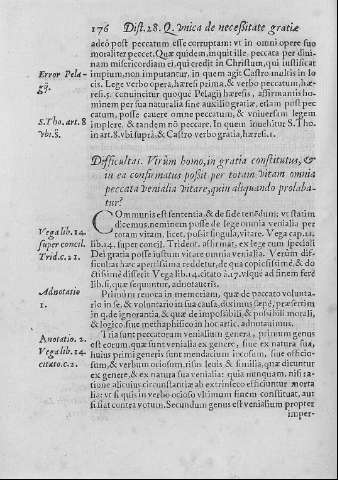 176 Dist. 28. Q. vnica de necessitate gratiæ
adeò post peccatum esse corruptam: vt in omni opere suo
moraliter peccet. Quæ quidem, inquit ille, peccata per diui-
nam misericordiam ei, qui credit in Christum, qui iustificat
Error Pela-
gij.
impium, non imputantur, in quem agit Castro multis in lo
cis. Lege verbo opera, hæresi prima, & verbo peccatum, hæ-
resi.5. conuincitur quoque Pelagij hæresis, affirmantis ho-
minem per sua naturalia sine auxilio gratiæ, etiam post pec
catum, posse cauere omne peccatum, & vniuersam legem
S.Tho. art.8
vbi.S.
implere, & tandem nõ peccare. In quem inuehitur S. Tho.
in art.8. vbi suprà, & Castro verbo gratia, hæresi.1.
Difficultas. Vtrùm homo, in gratia constitutus, &
in ea confirmatus possit per totam vitam omnia
peccata venialia vitare, quin aliquando prolaba-
tur?
COmmunis est sententia, & de fide tenẽdum; vt statim
dicemus, neminem posse de lege omnia venialia per
totam vitam, licet, possit singula, vitare. Vega cap.11.
Vega lib.14.
super concil.
Trid.c.22.
lib.14. super concil. Trident. affirmat, ex lege rum speciali
Dei gratia posse iustum vitare omnia venialia. Verùm dif-
ficultas hæc apertissima redderur, de qua copiosissimè, & do
ctissimè disserit Vega lib.14. citato à.17. vsque ad finem ferè
lib.si, quæ sequuntur, adnotaueris.
Adnotatio
1.
Primum reuoca in memoriam, quæ de peccato volunta-
rio in se, & voluntario in sua causa, diximus sæpè, præsertim
in q. de ignorantia, & quæ de impossibili, & possibili morali,
& logico, siue methaphisico in hoc artic. adnotauimus.
Anotatio. 2.
Vega lib.14
citato.c.2.
Tria sunt peccatorum venialium genera, primum genus
est eorum, quæ sunt venialia ex genere, siue ex natura sua,
huius primi generis sunt mendacium iocosum, siue officio-
sum, & verbum ociosum, risus leuis & similia, quæ dicuntur
ex genere, & ex natura sua venialia: quia nunquam, nisi ra-
tione alicuius circunstantiæ ab extrinseco efficiuntur morta
lia: vt si quis in verbo ocioso vltimum finem constituat, aut
si fiat contra votum. Secundum genus est venialium propter
imper-